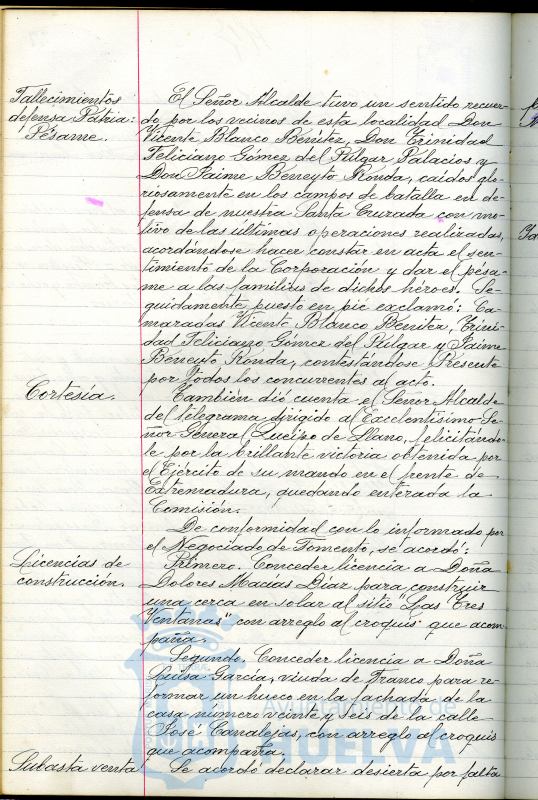 Fallecimientos
defensa Patria:
Pésame.
El Señor Alcalde tuvo un sentido recuer-
do por los vecinos de esta localidad Don
Vicente Blanco Benítez, Don Trinidad
Feliciano Gómez del Pulgar Palacios y
Don Jaime Beneyto Ronda, caídos glo-
riosamente en los campos de batalla en de-
fensa de nuestra Santa Cruzada con mo-
tivo de las ultimas operaciones realizadas,
acordándose hacer constar en acta el sen-
timiento de la Corporación y dar el pesa-
me a las familias de dichos héroes. Se-
guidamente puesto en pié exclamó: Ca-
maradas Vicente Blanco Benitez, Trini-
dad Feliciano Gómez del Pulgar y Jaime
Beneyto Ronda, contestándose Presente
por todos los concurrentes al acto.
Cortesía.
También dió cuenta el Señor Alcalde
del telegrama dirigido al Excelentísimo Se-
ñor General Queipo de Llano, felicitándo-
le por la brillante victoria obtenida por
el Ejército de su mando en el frente de
Extremadura, quedando enterada la
Comisión.
De conformidad con lo informado por
el Negociado de Fomento, se acordó:
Licencias de
construcción.
Primero. Conceder licencia a Doña
Dolores Macías Díaz para construir
una cerca en solar al sitio "Las Tres
Ventanas" con arreglo al croquis que acom-
paña.
Segundo. Conceder licencia a Doña
Luisa García, viuda de Franco para re-
formar un hueco en la fachada de la
casa número veinte y seis de la calle
José Canalejas, con arreglo al croquis
que acompaña.
Subasta venta
Se acordó declarar desierta por falta
Ayuntamiento de
HUELVA